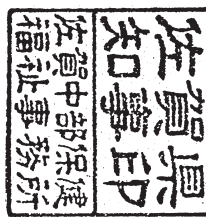 佐賀県
知事印
佐賀中部保健
福祉事務所